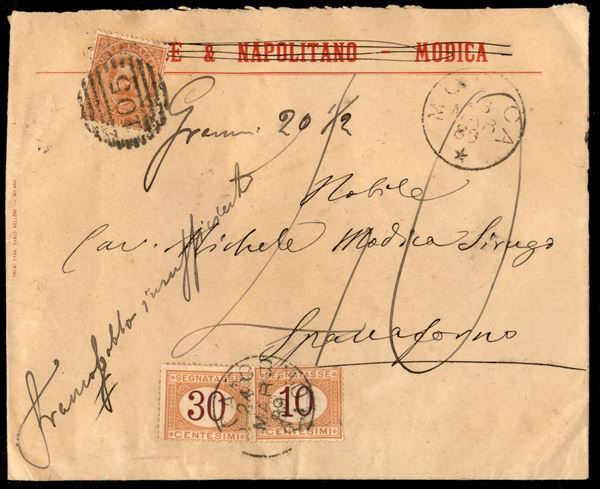 SE & NAPOLITANO - MODICA
Grammi 20 1/2
MODICA
MAR
89
Nobile
Cav. Michele Modica Sirugo
Spaccaforno
Francobollo insufficiente
SEGNATASSE
30
CENTESIMI
SEGNATASSE
10
CENTESIMI
24
MAR
89